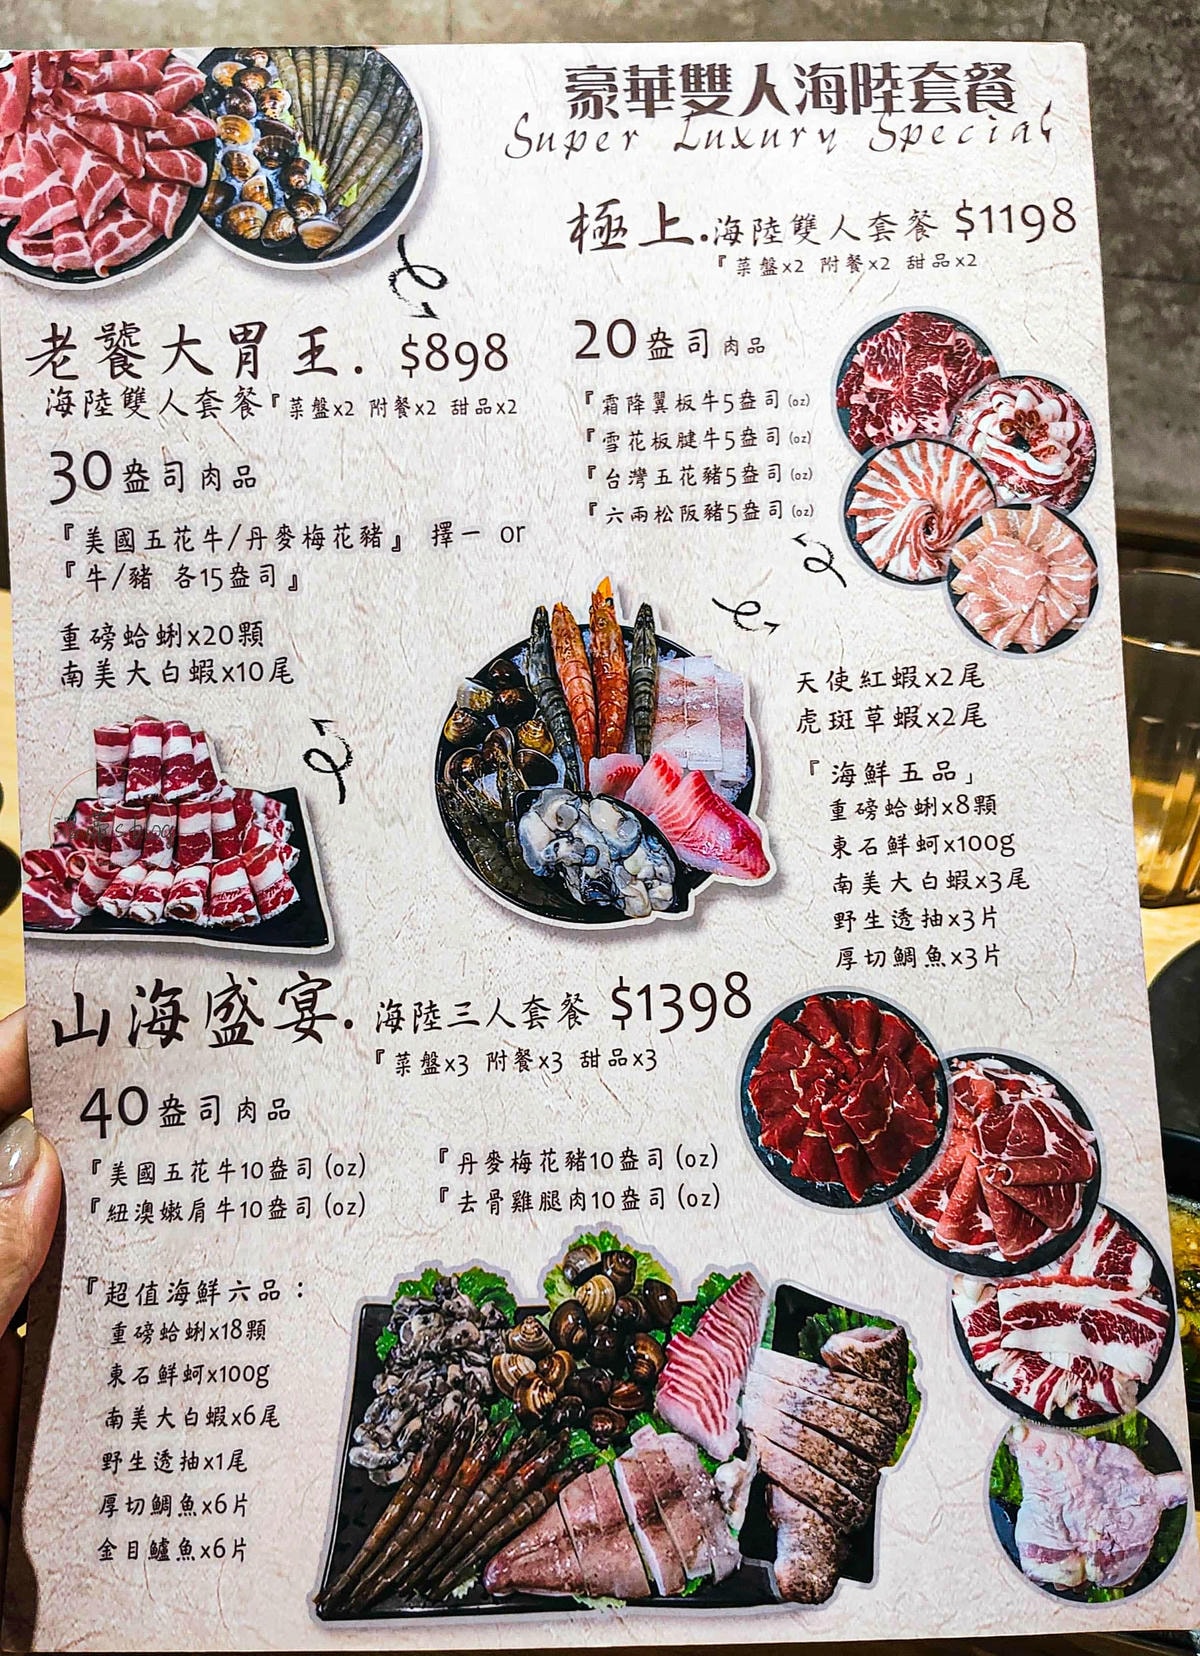 豪華雙人海陸套餐
Super Luxury Special
極上.海陸雙人套餐 $1198
『菜盤x2 附餐x2 甜品x2
20盎司肉品
『霜降翼板牛5盎司(oz)
『雪花板腱牛5盎司(oz)
『台灣五花豬5盎司(oz)
『六兩松阪豬5盎司(oz)
天使紅蝦x2尾
虎斑草蝦x2尾
「海鮮五品」
重磅蛤蜊x8顆
東石鮮蚵x100g
南美大白蝦x3尾
野生透抽x3片
厚切鯛魚x3片
老饕大胃王. $898
海陸雙人套餐『菜盤x2 附餐x2 甜品x2
30盎司肉品
『美國五花牛/丹麥梅花豬』 擇一 or
『牛/豬 各15盎司』
重磅蛤蜊x20顆
南美大白蝦x10尾
山海盛宴. 海陸三人套餐 $1398
『菜盤x3 附餐x3 甜品x3
40盎司肉品
『美國五花牛10盎司(oz) 『丹麥梅花豬10盎司(oz)
『紐澳嫩肩牛10盎司(oz) 『去骨雞腿肉10盎司(oz)
『超值海鮮六品：
重磅蛤蜊x18顆
東石鮮蚵x100g
南美大白蝦x6尾
野生透抽x1尾
厚切鯛魚x6片
金目鱸魚x6片